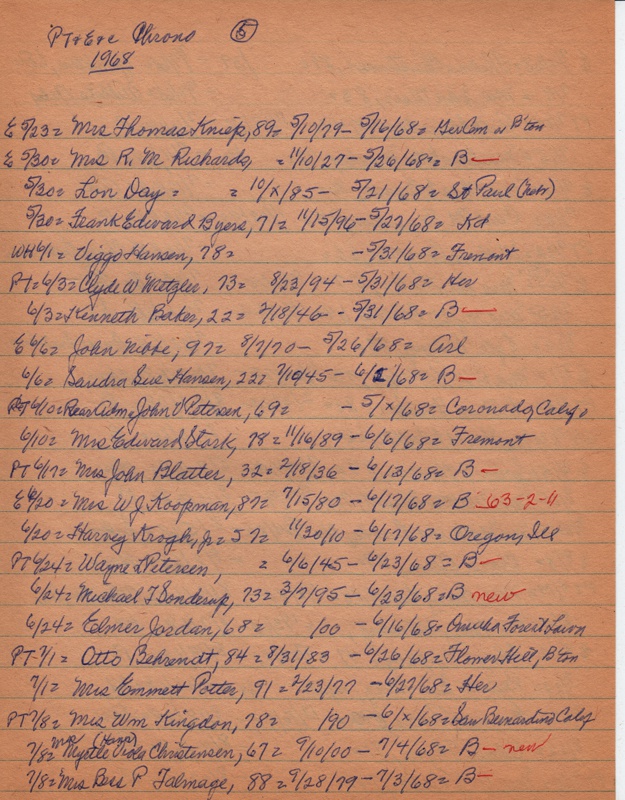 PT & E & c Chrono ⑤
1968
E 5/23= Mrs Thomas Kniep, 89= 5/10/79 - 5/16/68= GerCem w B'ton
E 5/30= Mrs R. M Richards, = 11/10/27 - 5/26/68= B-
5/30= Lon Day = = 10/x/85 - 5/21/68= St Paul (Nebr)
5/30= Frank Edward Byers, 71= 11/15/96 - 5/27/68= Kd
WH 6/1= Viggo Hansen, 78= - 5/31/68= Fremont
PT= 6/3= Clyde W Metzler, 73= 8/23/94 - 5/31/68= Her
6/3= Kenneth Baker, 22= 2/18/46 - 5/31/68= B-
E 6/6= John Nibbe, 97= 8/7/70 - 5/26/68= Arl
6/6= Sandra Sue Hansen, 22= 7/10/45 - 6/2/68= B-
PT 6/10= Rear Adm John V Petersen, 69= - 5/x/68= Coronado, Calif
6/10= Mrs Edward Stork, 78= 11/16/89 - 6/6/68= Fremont
PT 6/17= Mrs John Blatter, 32= 2/18/36 - 6/13/68= B-
E 6/20= Mrs W J Koopman, 87= 7/15/80 - 6/17/68= B 63-2-11
6/20= Harvey Krogh, Jr= 57= 11/30/10 - 6/17/68= Oregon, Ill
PT 6/24= Wayne L Petersen, = 6/6/45 - 6/23/68= B-
6/24= Michael F Sonderup, 73= 3/7/95 - 6/23/68= B new
6/24= Elmer Jordan, 68= /00 - 6/16/68= Omaha Forest Lawn
PT 7/1= Otto Behrendt, 84= 8/31/83 - 6/26/68= Flower Hill, B'ton
7/1= Mrs Emmett Potter, 91= 2/23/77 - 6/27/68= Her
PT 7/8= Mrs Wm Kingdon, 78= /90 - 6/x/68= San Bernardino Calif
7/8= Mrs (Hans) Myrtle Viola Christensen, 67= 9/10/00 - 7/4/68= B- new
7/8= Mrs Bess P Talmage, 88= 9/28/79 - 7/3/68= B-